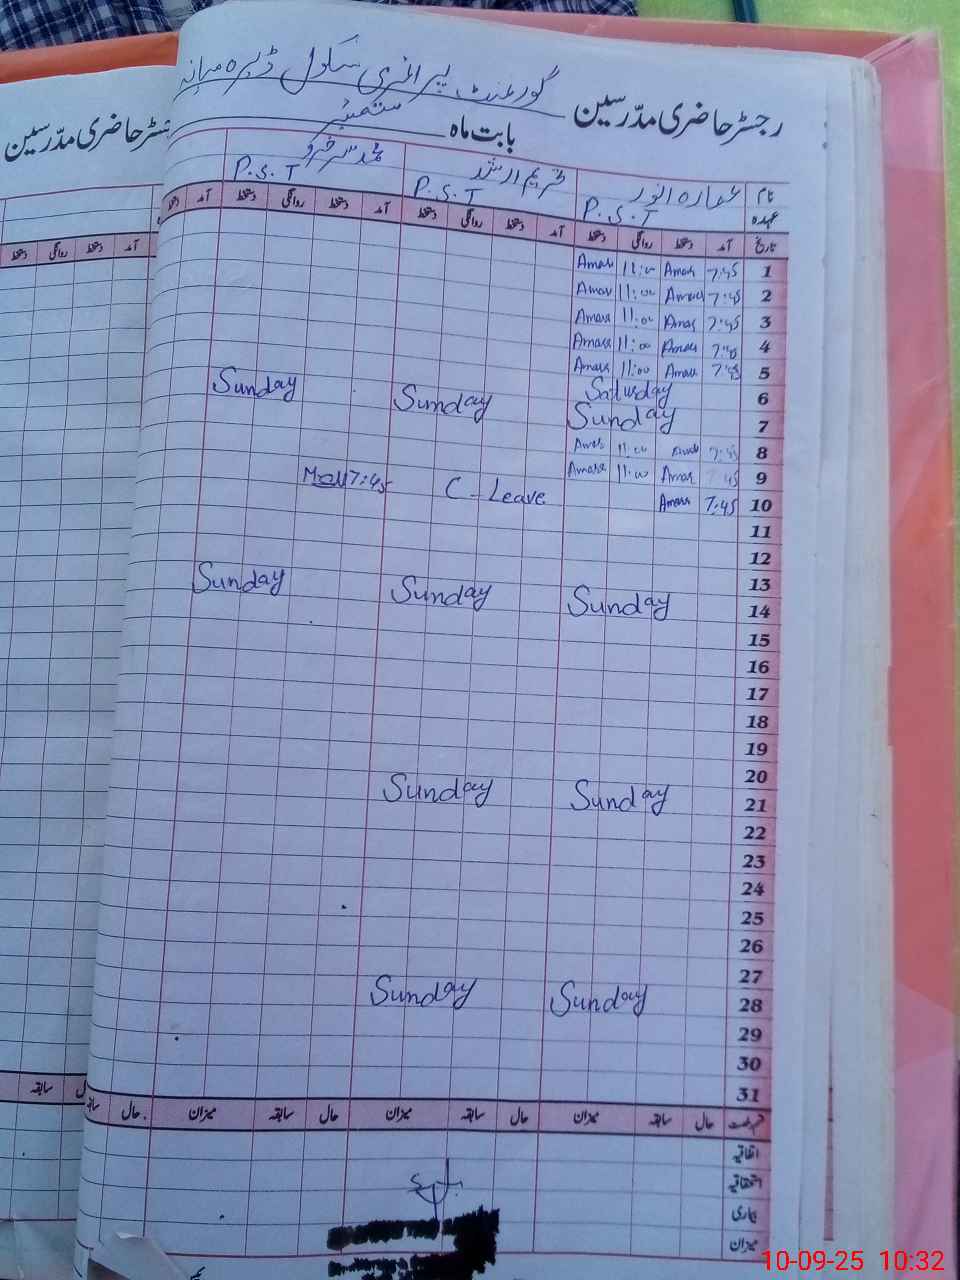 گورنمنٹ پرائمری سکول ڈیرہ میانہ
رجسٹر حاضری مدرّسین
بابت ماہ ستمبر
نام عمارہ انور
عہدہ P.S.T P.S.T P.S.T
تاریخ آمد دستخط روانگی دستخط آمد دستخط روانگی دستخط آمد دستخط روانگی دستخط
1 7:45 Amar 11:00 Amar
2 7:45 11:00 Amar
3 7:45 Amar 11:00 Amar
4 11:00 Amara
5 7:45 Amar 11:00 Amara
6 Saturday
7 Sunday Sunday Sunday
8 7:45 11:00
9 45 Amar 11:00 Amara
10 7:45 Amara C-Leave 7:45
11
12
13
14 Sunday Sunday Sunday
15
16
17
18
19
20
21 Sunday Sunday
22
23
24
25
26
27
28 Sunday Sunday
29
30
31
حال سابقہ میزان حال سابقہ میزان حال سابقہ میزان حال
اتفاقیہ
استحقاقیہ
بیماری
میزان
رجسٹر حاضری مدرّسین
آمد دستخط روانگی دستخط
سابقہ
10-09-25 10:32